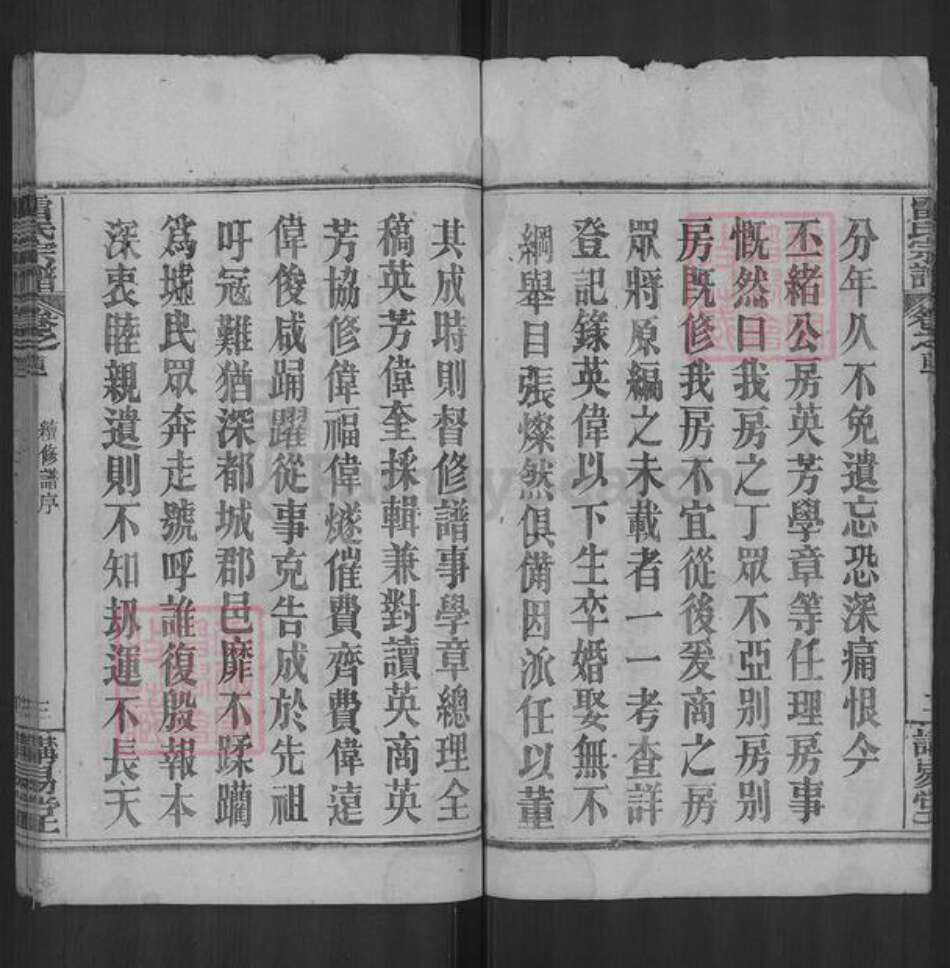 分年久不免遺忘恐深痛恨今
丕緒公房英芳學章等任理房事
慨然曰我房之丁眾不亞別房別
房既修我房不宜從後爰商之房
眾將原編之未載者一一考查詳
登記錄英偉以下生卒婚娶無不
綱舉目張燦然俱備因派任以董
其成時則督修譜事學章總理全
稿英芳偉奎採輯兼對讀英商英
芳協修偉福偉燧催費齊費偉遠
偉俊咸踊躍從事克告成於先祖
吁寇難猶深都城郡邑靡不蹂躪
為墟民眾奔走號呼誰復殷報本
深衷睦親遺則不知刼運不長天
雷氏宗譜
卷之
續修譜序
三
講易堂